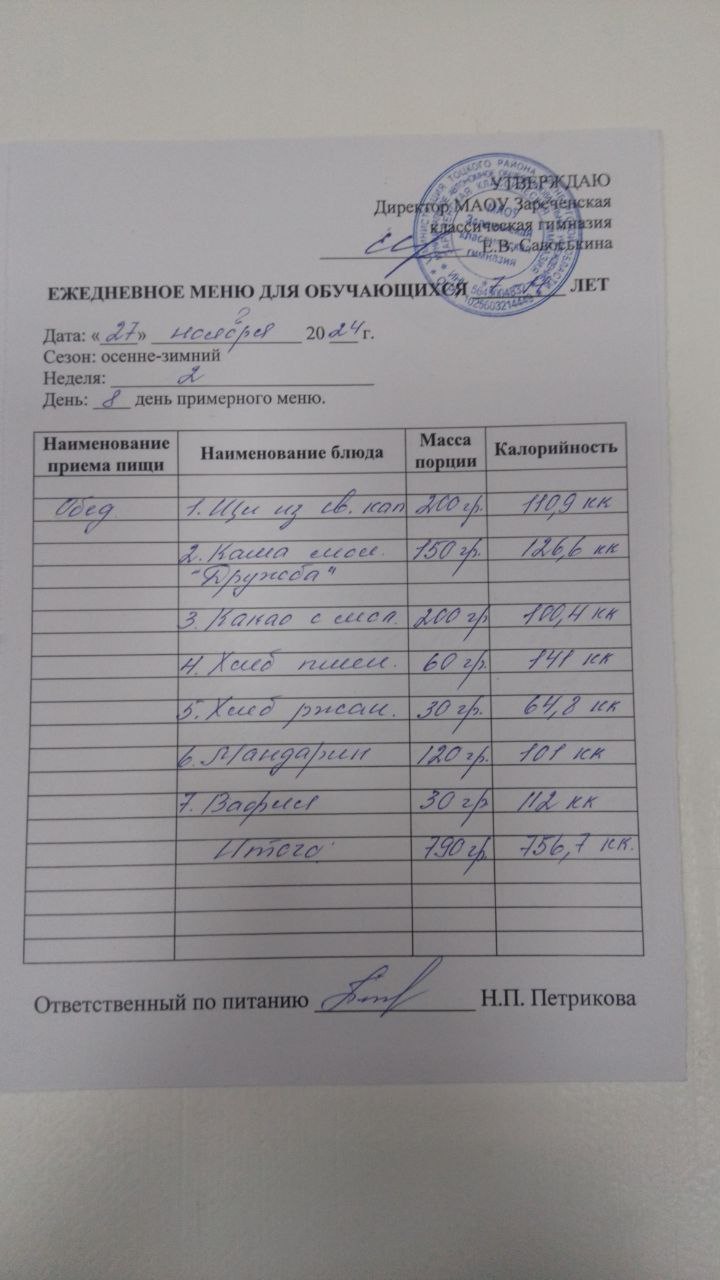 УТВЕРЖДАЮ
Директор МАОУ Зареченская
классическая гимназия
Е.В. Савоськина
ЕЖЕДНЕВНОЕ МЕНЮ ДЛЯ ОБУЧАЮЩИХСЯ 7- ЛЕТ
Дата: «27» ноября 2024 г.
Сезон: осенне-зимний
Неделя: 2
День: 8 день примерного меню.
Наименование приема пищи Наименование блюда Масса порции Калорийность
Обед 1. Щи из св. кап 200 гр. 110,9 кк
2. Каша мол. 150 гр. 126,6 кк
"Дружба"
3. Какао с мол. 200 гр 100,4 кк
4. Хлеб пшен. 60 гр. 141 кк
5. Хлеб ржан. 30 гр. 64,8 кк
6. Мандарин 120 гр. 101 кк
7. Вафля 30 гр 112 кк
Итого: 790 гр. 756,7 кк.
Ответственный по питанию Н.П. Петрикова
МАОУ
Зареченская
классическая
гимназия